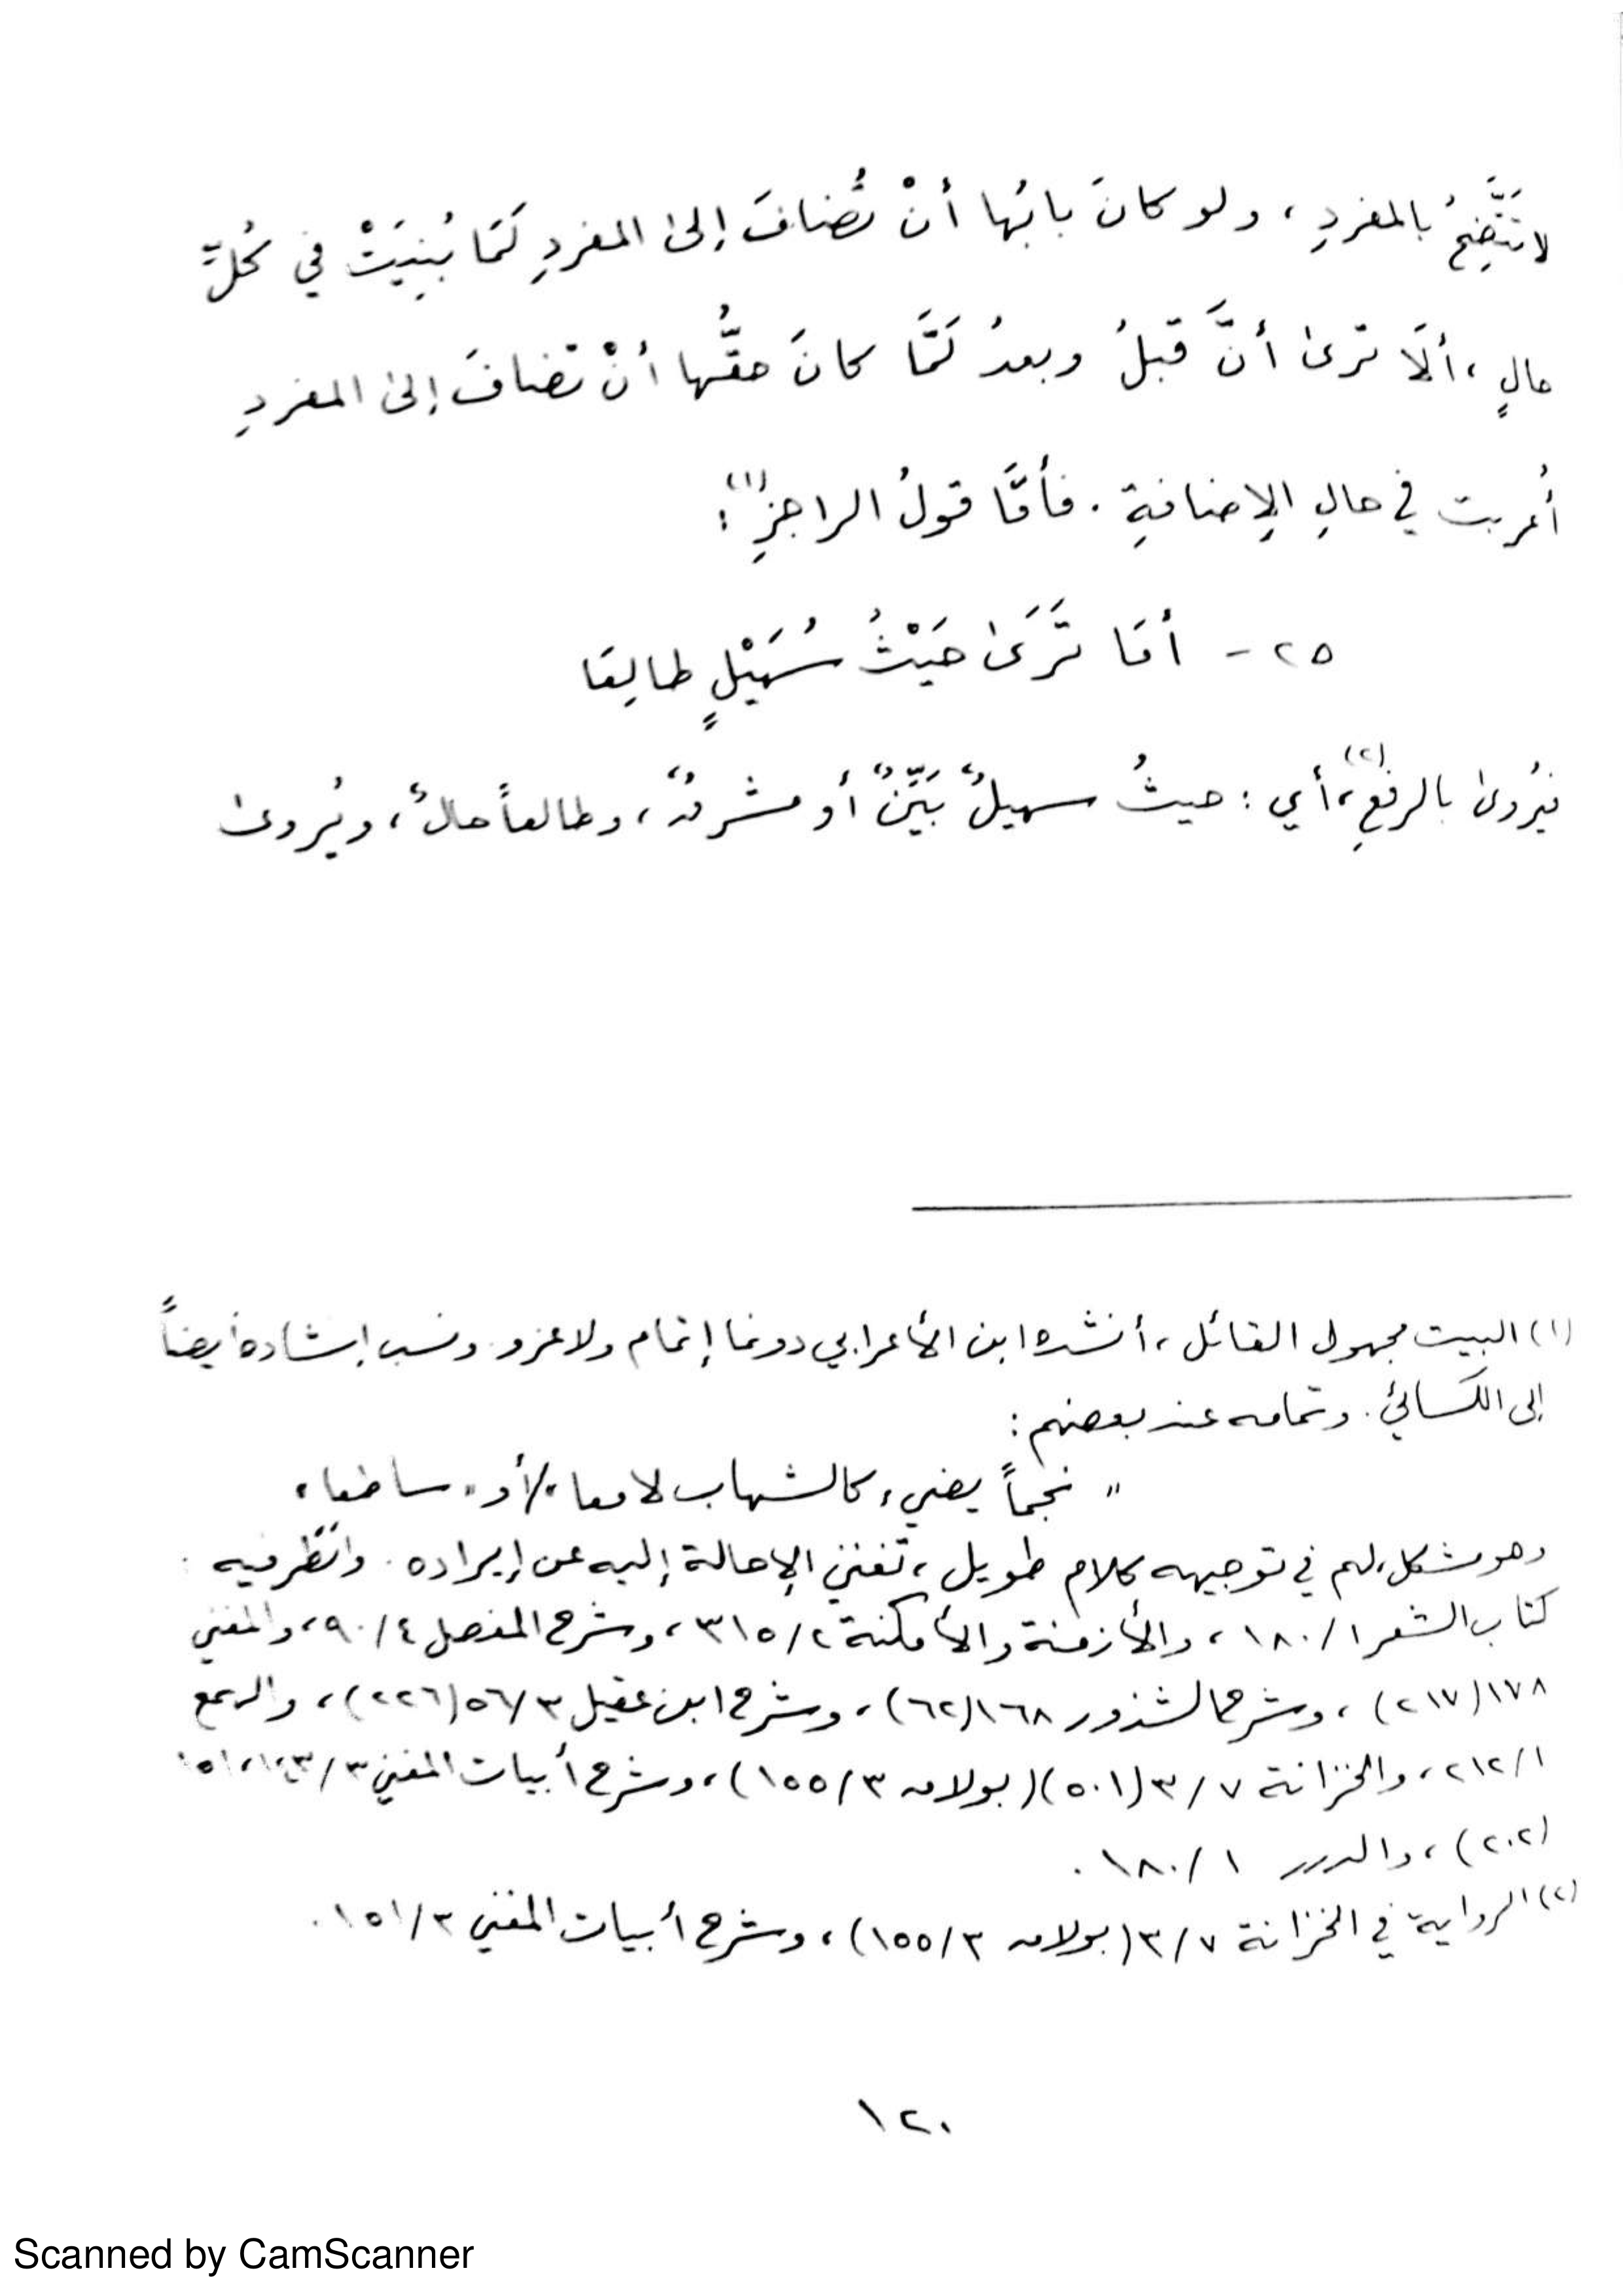 لا تَتَّضِحُ بالمفردِ ، ولو كانَ بابُها أنْ تُضافَ إلىٰ المفردِ لَمَا بُنِيَتْ في كُلِّ
حالٍ ، ألَا ترىٰ أنَّ قبلُ وبعدُ لَمَّا كانَ حقُّها أنْ تضافَ إلىٰ المفردِ
أُعربت في حالِ الإضافةِ . فأمَّا قولُ الراجزِ(١) :
٢٥ - أمَا تَرَىٰ حَيْثُ سُهَيْلٍ طالِعَا
فيُروىٰ بالرفعِ(٢) ، أي : حيثُ سهيلٌ بَيِّنٌ أو مشرقٌ ، وطالعاً حالٌ ، ويُروىٰ
(١) البيت مجهول القائل ، أنشده ابن الأعرابي دونما إتمام ولا عزو . ونسب إنشاده أيضاً
إلى الكسائيّ . وتمامه عند بعضهم :
" نجماً يضيء كالشهاب لامعا " / أو " ساطعا "
وهو مشكل ، لهم في توجيهه كلام طويل ، تغني الإحالة إليه عن إيراده . وانظر فيه :
كتاب الشعر ١/١٨٠ ، والأزمنة والأمكنة ٢/٣١٥ ، وشرح المفصل ٤/٩٠ ، والمغني
١٧٨ (٢١٧) ، وشرح الشذور ١٦٨ (٦٢) ، وشرح ابن عقيل ٣/٥٦ (٢٢٦) ، والهمع
١/٢١٢ ، والخزانة ٧/٣ (٥٠١) (بولاق ٣/١٥٥) ، وشرح أبيات المغني ٣/ ١٥١
(٢٠٢) ، والدرر ١/١٨٠ .
(٢) الرواية في الخزانة ٧/٣ (بولاق ٣/١٥٥) ، وشرح أبيات المغني ٣/١٥١ .
١٢٠
Scanned by CamScanner